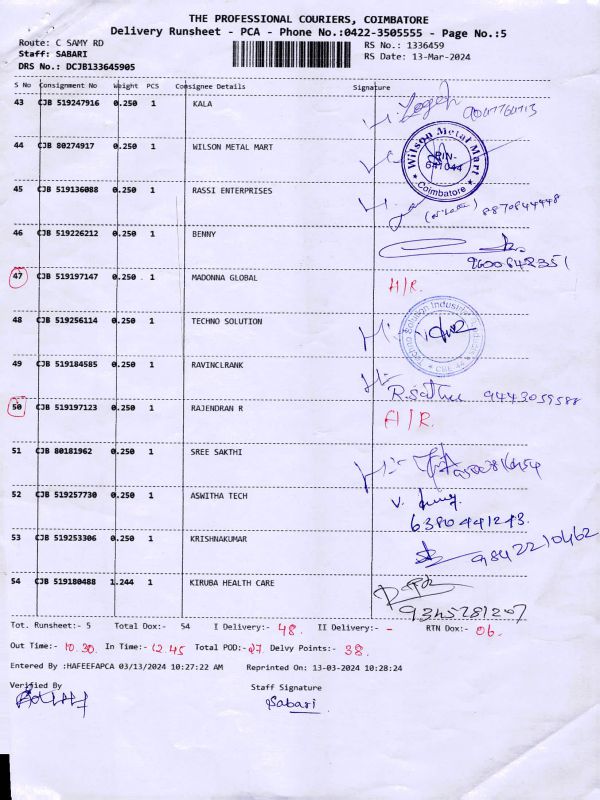 THE PROFESSIONAL COURIERS, COIMBATORE
Delivery Runsheet - PCA - Phone No.:0422-3505555 - Page No.:5
Route: C SAMY RD
RS No.: 1336459
Staff: SABARI
RS Date: 13-Mar-2024
DRS No.: DCJB133645905
S No Consignment No Weight PCS Consignee Details Signature
43 CJB 519247916 0.250 1 KALA
44 CJB 80274917 0.250 1 WILSON METAL MART
Wilson Metal Mart
PIN-
641044
Coimbatore
45 CJB 519136088 0.250 1 RASSI ENTERPRISES
8870844448
46 CJB 519226212 0.250 1 BENNY
9600642351
47 CJB 519197147 0.250 1 MADONNA GLOBAL A/R.
48 CJB 519256114 0.250 1 TECHNO SOLUTION
Techno Solution Industrial
CBE-44
49 CJB 519184585 0.250 1 RAVINCLRANK
9443059588
50 CJB 519197123 0.250 1 RAJENDRAN R A/R.
51 CJB 80181962 0.250 1 SREE SAKTHI
52 CJB 519257730 0.250 1 ASWITHA TECH
6380441243.
53 CJB 519253306 0.250 1 KRISHNAKUMAR
9842210462
54 CJB 519180488 1.244 1 KIRUBA HEALTH CARE
9345781207
Tot. Runsheet:- 5 Total Dox:- 54 I Delivery:- 48. II Delivery:- - RTN Dox:- 06.
Out Time:- 10.30. In Time:- 12.45 Total POD:- 27. Delvy Points:- 38.
Entered By :HAFEEFAPCA 03/13/2024 10:27:22 AM Reprinted On: 13-03-2024 10:28:24
Verified By Staff Signature
Sabari